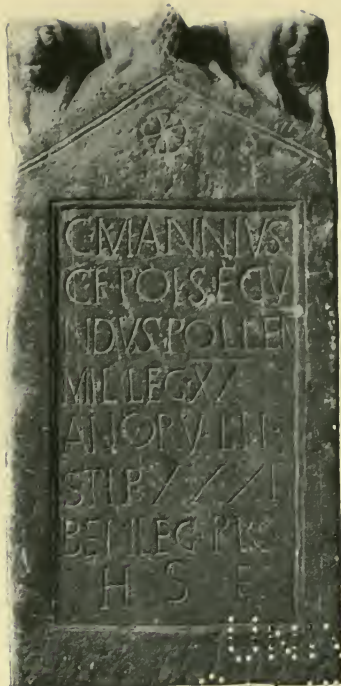 C·MANNIVS
C·F·POL·SECV
NDVS·POLLEN
MIL·LEG·XX
ANORV·LII
STIP·XXXI
BEN·LEG·PR
H S E